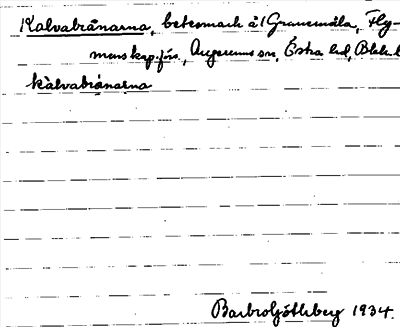 Kalvabrånarna, betesmark å 1 Grammåla, Fly-
menskap.förs., Augerums sn, Östra hd, Blek.l
kàlvabrånarna
Barbro Göthberg 1934.